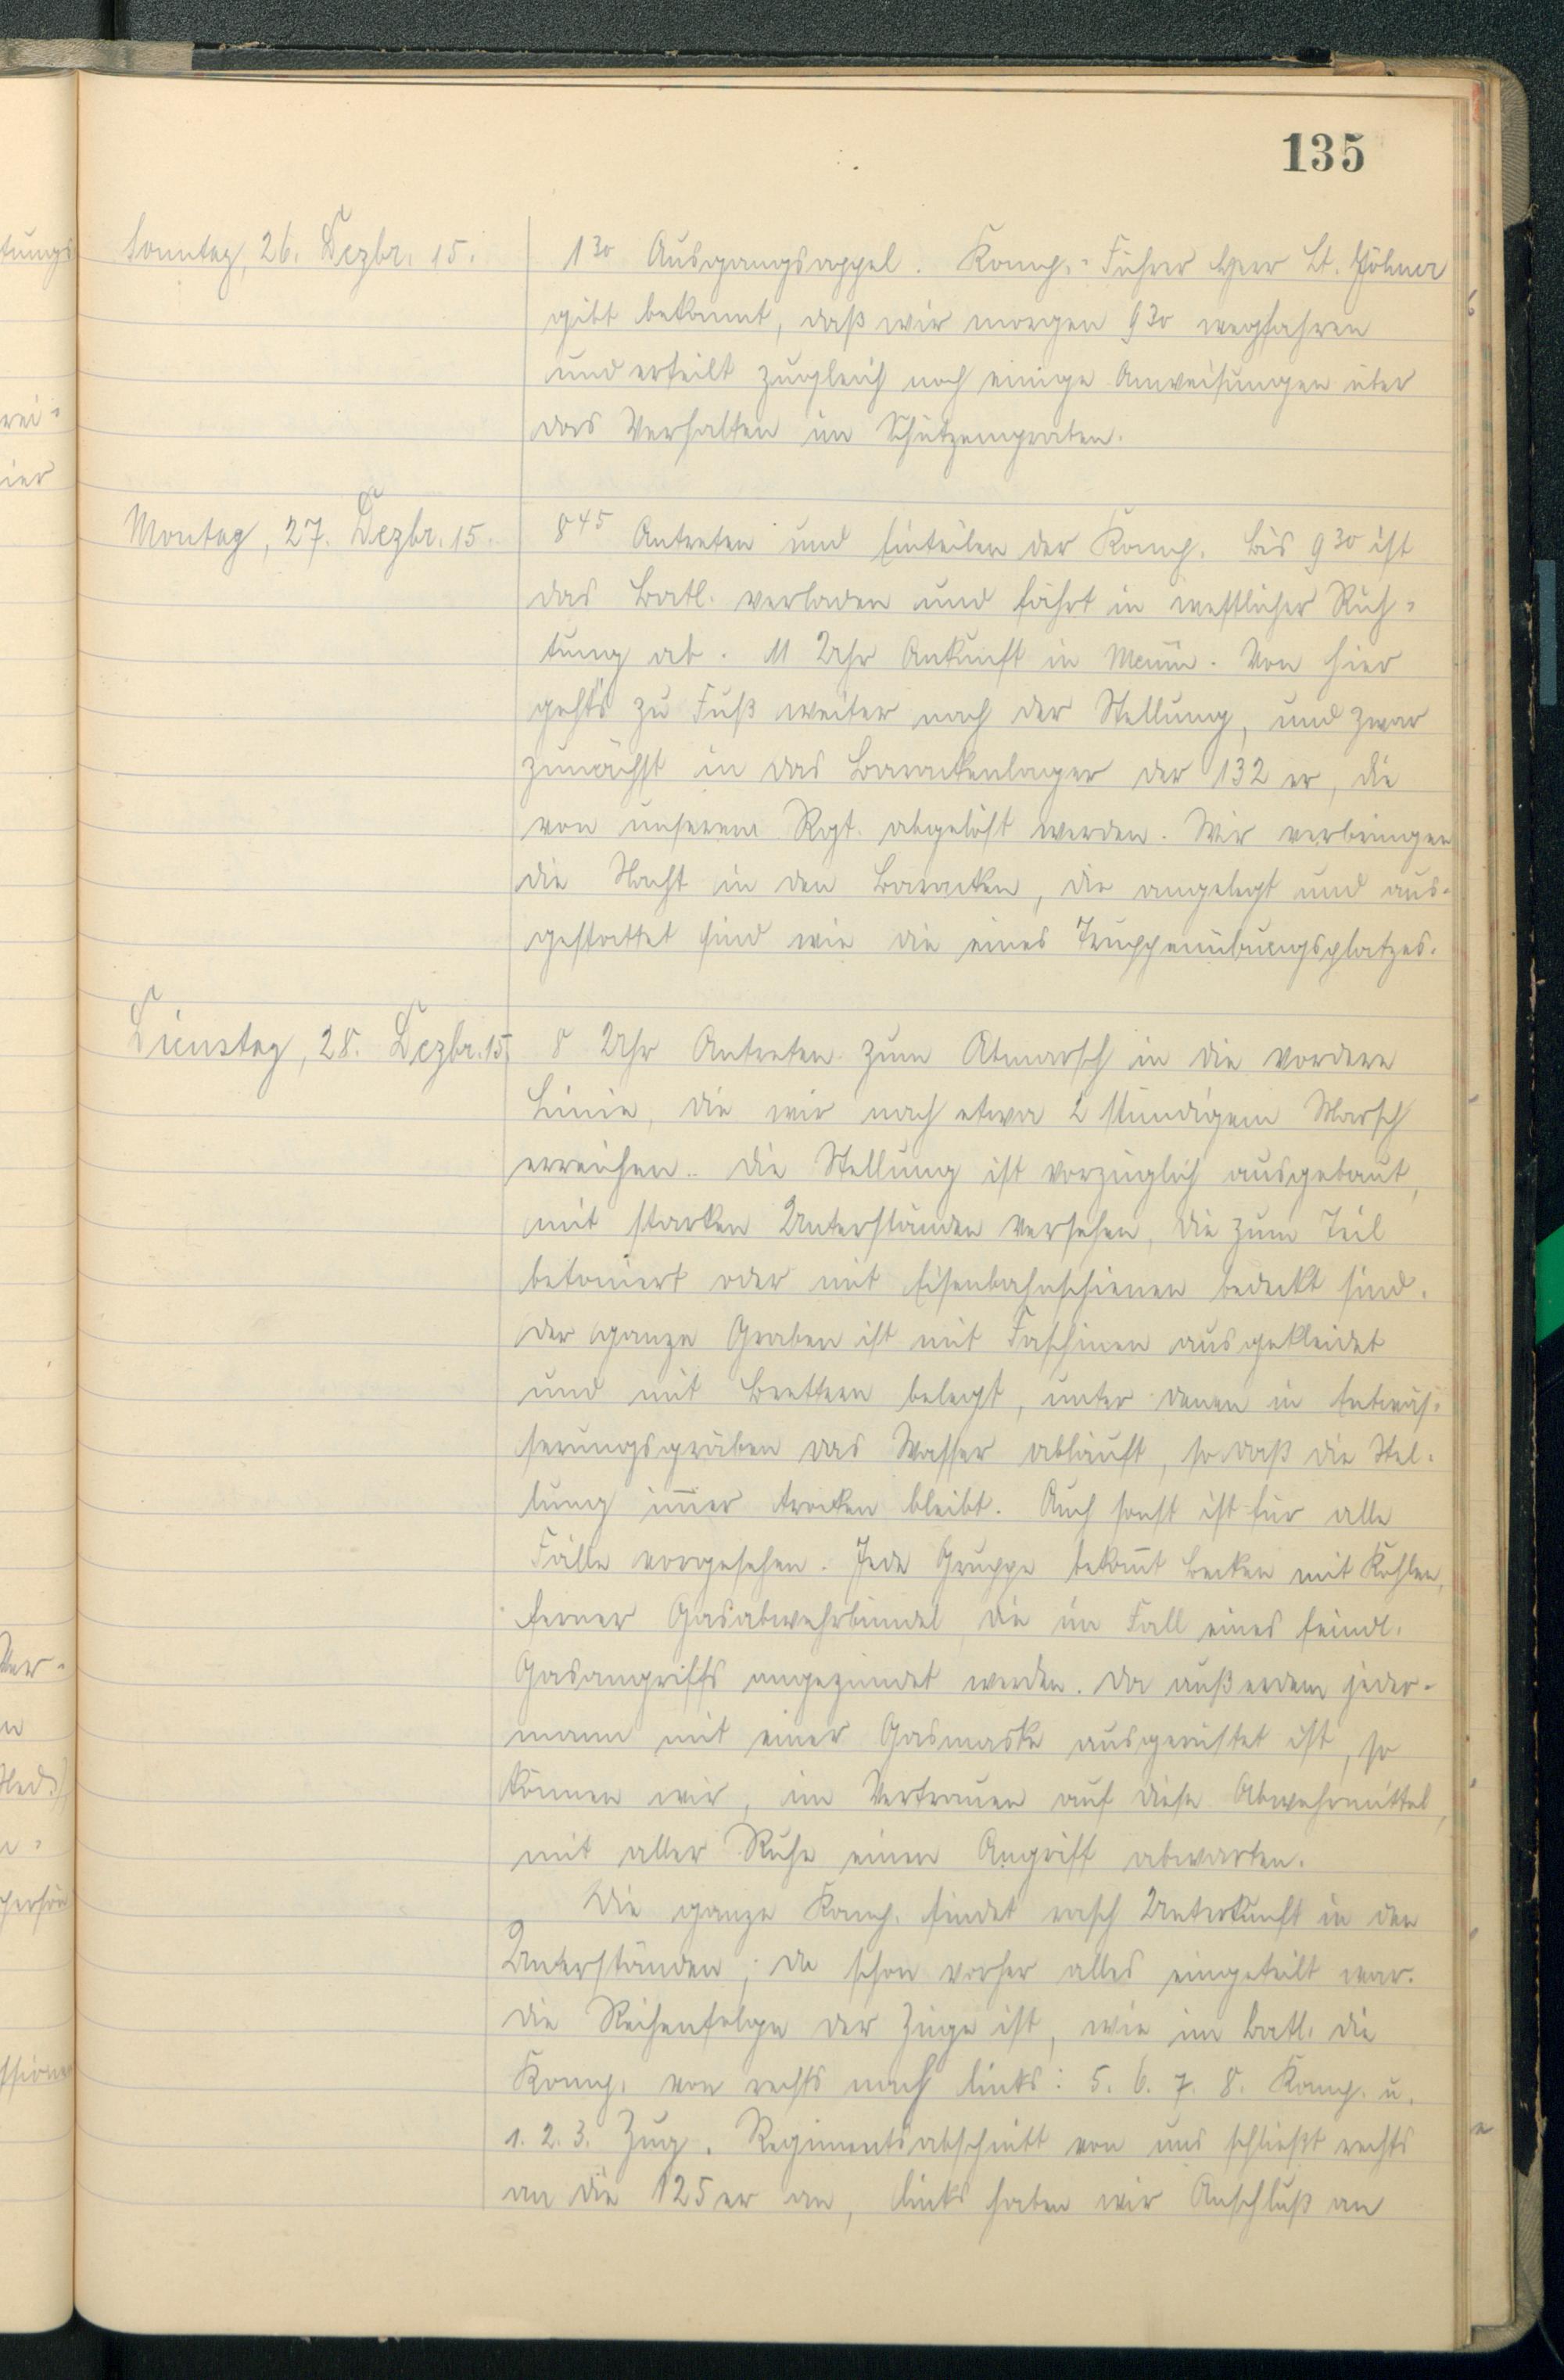 135
Sonntag, 26. Dezbr. 15.
1 30 Ausgangsappel. Komp.-Führer Herr Lt.
gibt bekannt, daß wir morgen 9 30 wegfahren
und erteilt zugleich noch einige Anweisungen über
das Verhalten im Schützengraben.
Montag, 27. Dezbr. 15.
8 45 Antreten und Einteilen der Komp. Bis 9 30 ist
das Batl. verladen und fährt in westlicher Rich-
tung ab. 11 Uhr Ankunft in Menin. Von hier
geht's zu Fuß weiter nach der Stellung, und zwar
zunächst in das Barackenlager der 132 er, die
von unserem Rgt. abgelöst werden. Wir verbringen
die Nacht in den Baracken, die angelegt und aus-
gestattet sind wie die eines Truppenübungsplatzes.
Dienstag, 28. Dezbr. 15.
8 Uhr Antreten zum Abmarsch in die vordere
Linie, die wir nach etwa 2 stündigem Marsch
erreichen.. Die Stellung ist vorzüglich ausgebaut,
mit starken Unterständen versehen, die zum Teil
betoniert oder mit Eisenbahnschienen bedeckt sind.
Der ganze Graben ist mit Faschinen ausgekleidet
und mit Brettern belegt, unter denen in Entwäs-
serungsgräben das Wasser abläuft, so daß die Stel-
lung im̅er trocken bleibt. Auch sonst ist für alle
Fälle vorgesehen. Jede Gruppe bekom̅t Becken mit Kohlen,
ferner Gasabwehrbündel, die im Fall eines feindl.
Gasangriffs angezündet werden. Da außerdem jeder-
mann mit einer Gasmaske ausgerüstet ist, so
können wir, im Vertrauen auf diese Abwehrmittel,
mit aller Ruhe einen Angriff abwarten.
Die ganze Komp. findet rasch Unterkunft in den
Unterständen; da schon vorher alles eingeteilt war.
Die Reihenfolge der Züge ist, wie im Batl. die
Komp. von rechts nach links: 5. 6. 7. 8. Komp. u.
1. 2. 3. Zug. Regimentsabschnitt von uns schließt rechts
an die 125 er an, links haben wir Anschluß an